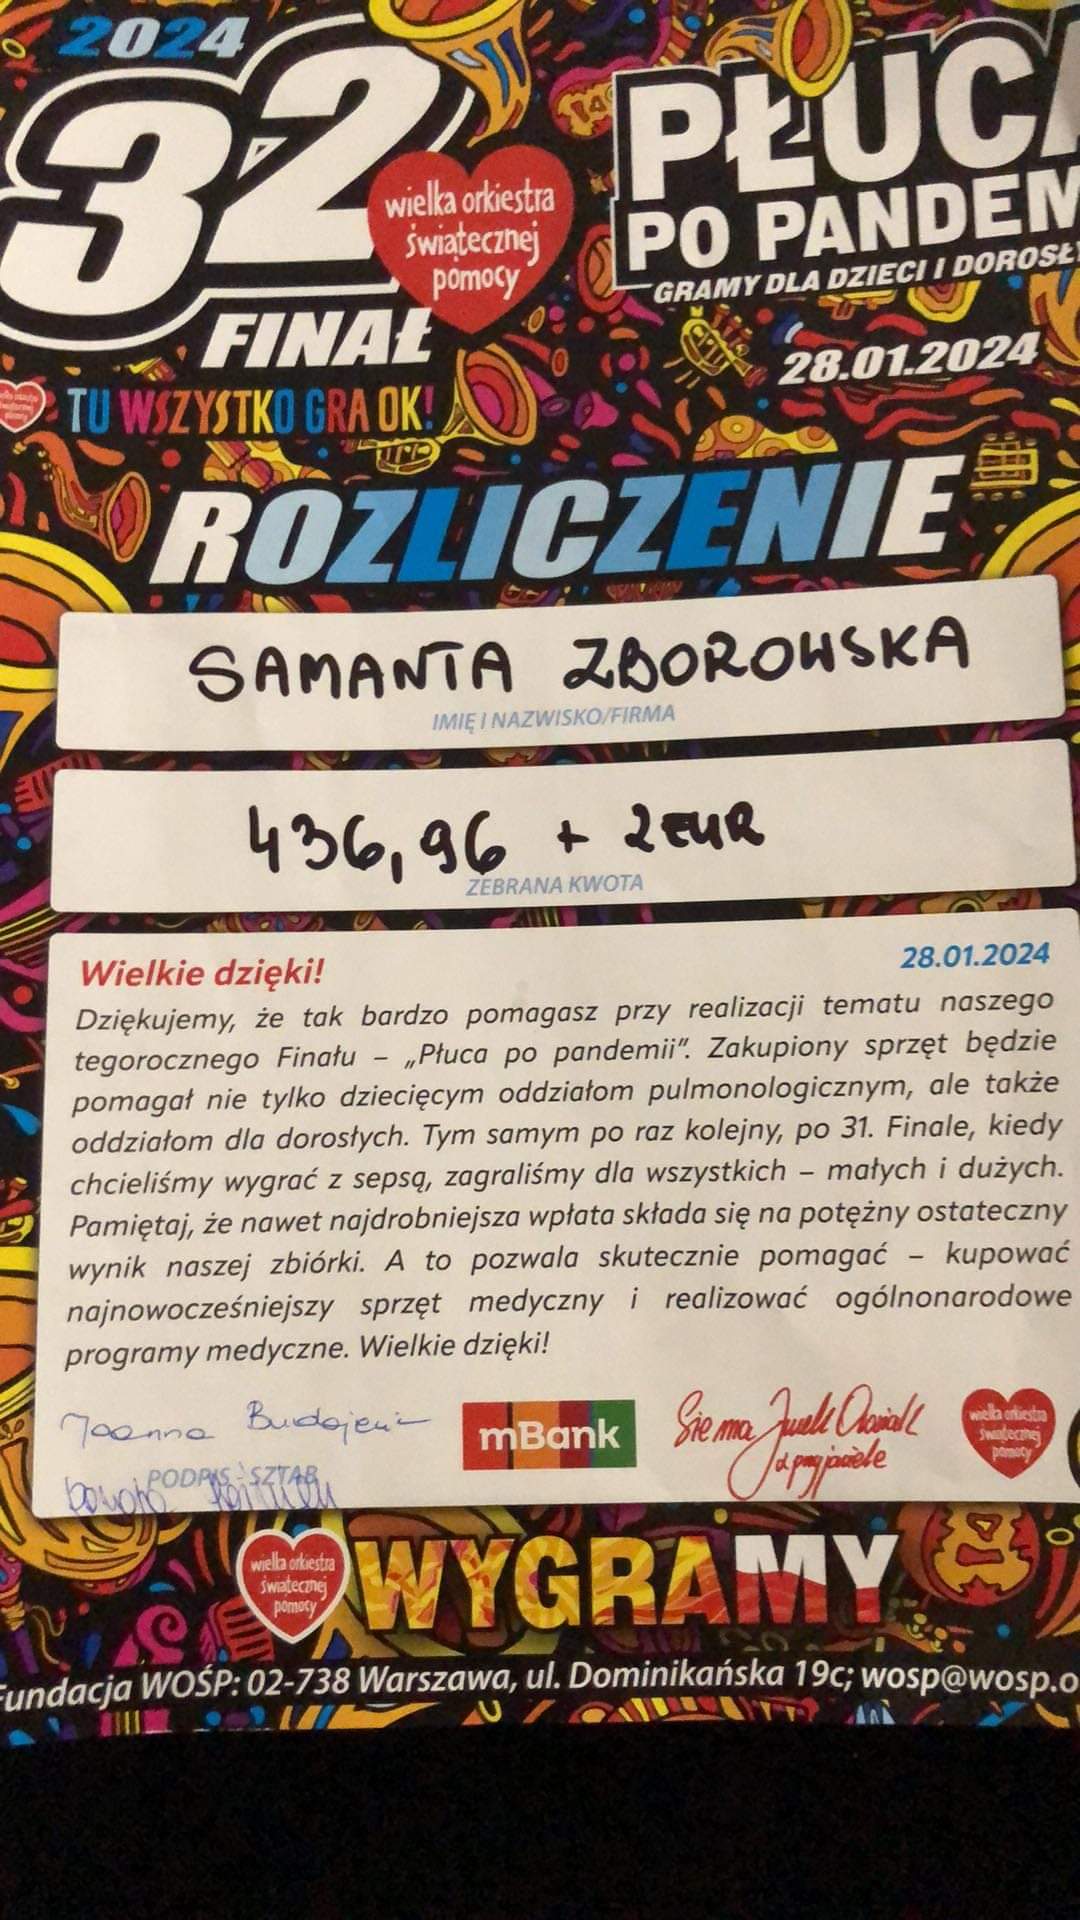 2024
32
FINAŁ
wielka orkiestra
świątecznej
pomocy
TU WSZYSTKO GRA OK!
PŁUCA
PO PANDEM
GRAMY DLA DZIECI I DOROSŁY
28.01.2024
ROZLICZENIE
SAMANTA ZBOROWSKA
IMIĘ I NAZWISKO/FIRMA
436,96 + 2 EUR
ZEBRANA KWOTA
Wielkie dzięki! 28.01.2024
Dziękujemy, że tak bardzo pomagasz przy realizacji tematu naszego
tegorocznego Finału – „Płuca po pandemii”. Zakupiony sprzęt będzie
pomagał nie tylko dziecięcym oddziałom pulmonologicznym, ale także
oddziałom dla dorosłych. Tym samym po raz kolejny, po 31. Finale, kiedy
chcieliśmy wygrać z sepsą, zagraliśmy dla wszystkich – małych i dużych.
Pamiętaj, że nawet najdrobniejsza wpłata składa się na potężny ostateczny
wynik naszej zbiórki. A to pozwala skutecznie pomagać – kupować
najnowocześniejszy sprzęt medyczny i realizować ogólnonarodowe
programy medyczne. Wielkie dzięki!
Joanna
PODPIS - SZTAB
mBank
Sie ma Jurek Owsiak
z przyjaciele
wielka orkiestra
świątecznej
pomocy
wielka orkiestra
świątecznej
pomocy
WYGRAMY
Fundacja WOŚP: 02-738 Warszawa, ul. Dominikańska 19c; wosp@wosp.o